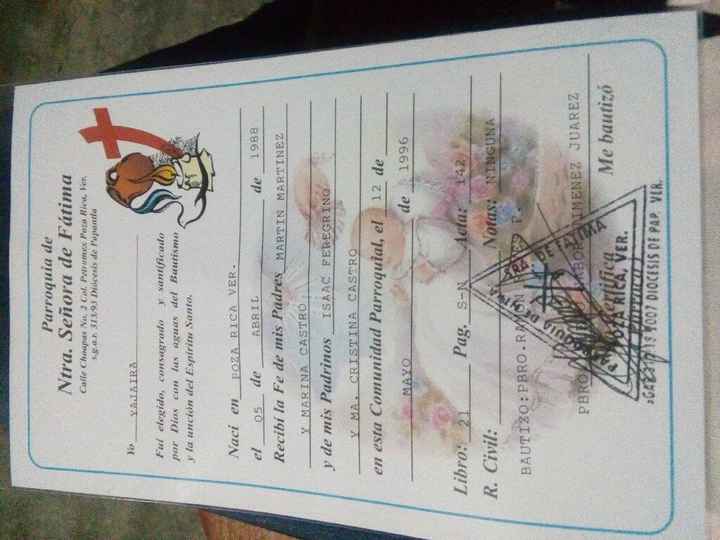 Parroquia de
Ntra. Señora de Fátima
Calle Choapas No. 2 Col. Petromex Poza Rica, Ver.
s.g.a.r. 313/93 Diócesis de Papantla
Yo YAJAIRA
Fui elegido, consagrado y santificado
por Dios con las aguas del Bautismo
y la unción del Espíritu Santo.
Nací en POZA RICA VER.
el 05 de ABRIL de 1988
Recibí la Fe de mis Padres MARTIN MARTINEZ
Y MARINA CASTRO
y de mis Padrinos ISAAC PEREGRINO
Y MA. CRISTINA CASTRO
en esta Comunidad Parroquial, el 12 de
MAYO de 1996
Libro: 21 Pag. S-N Acta: 142
R. Civil: Notas: NINGUNA
BAUTIZO: PBRO. P.
PBRO. JIMENEZ JUAREZ
Me bautizó
DE FATIMA
POZA RICA, VER.
DIOCESIS DE PAP. VER.